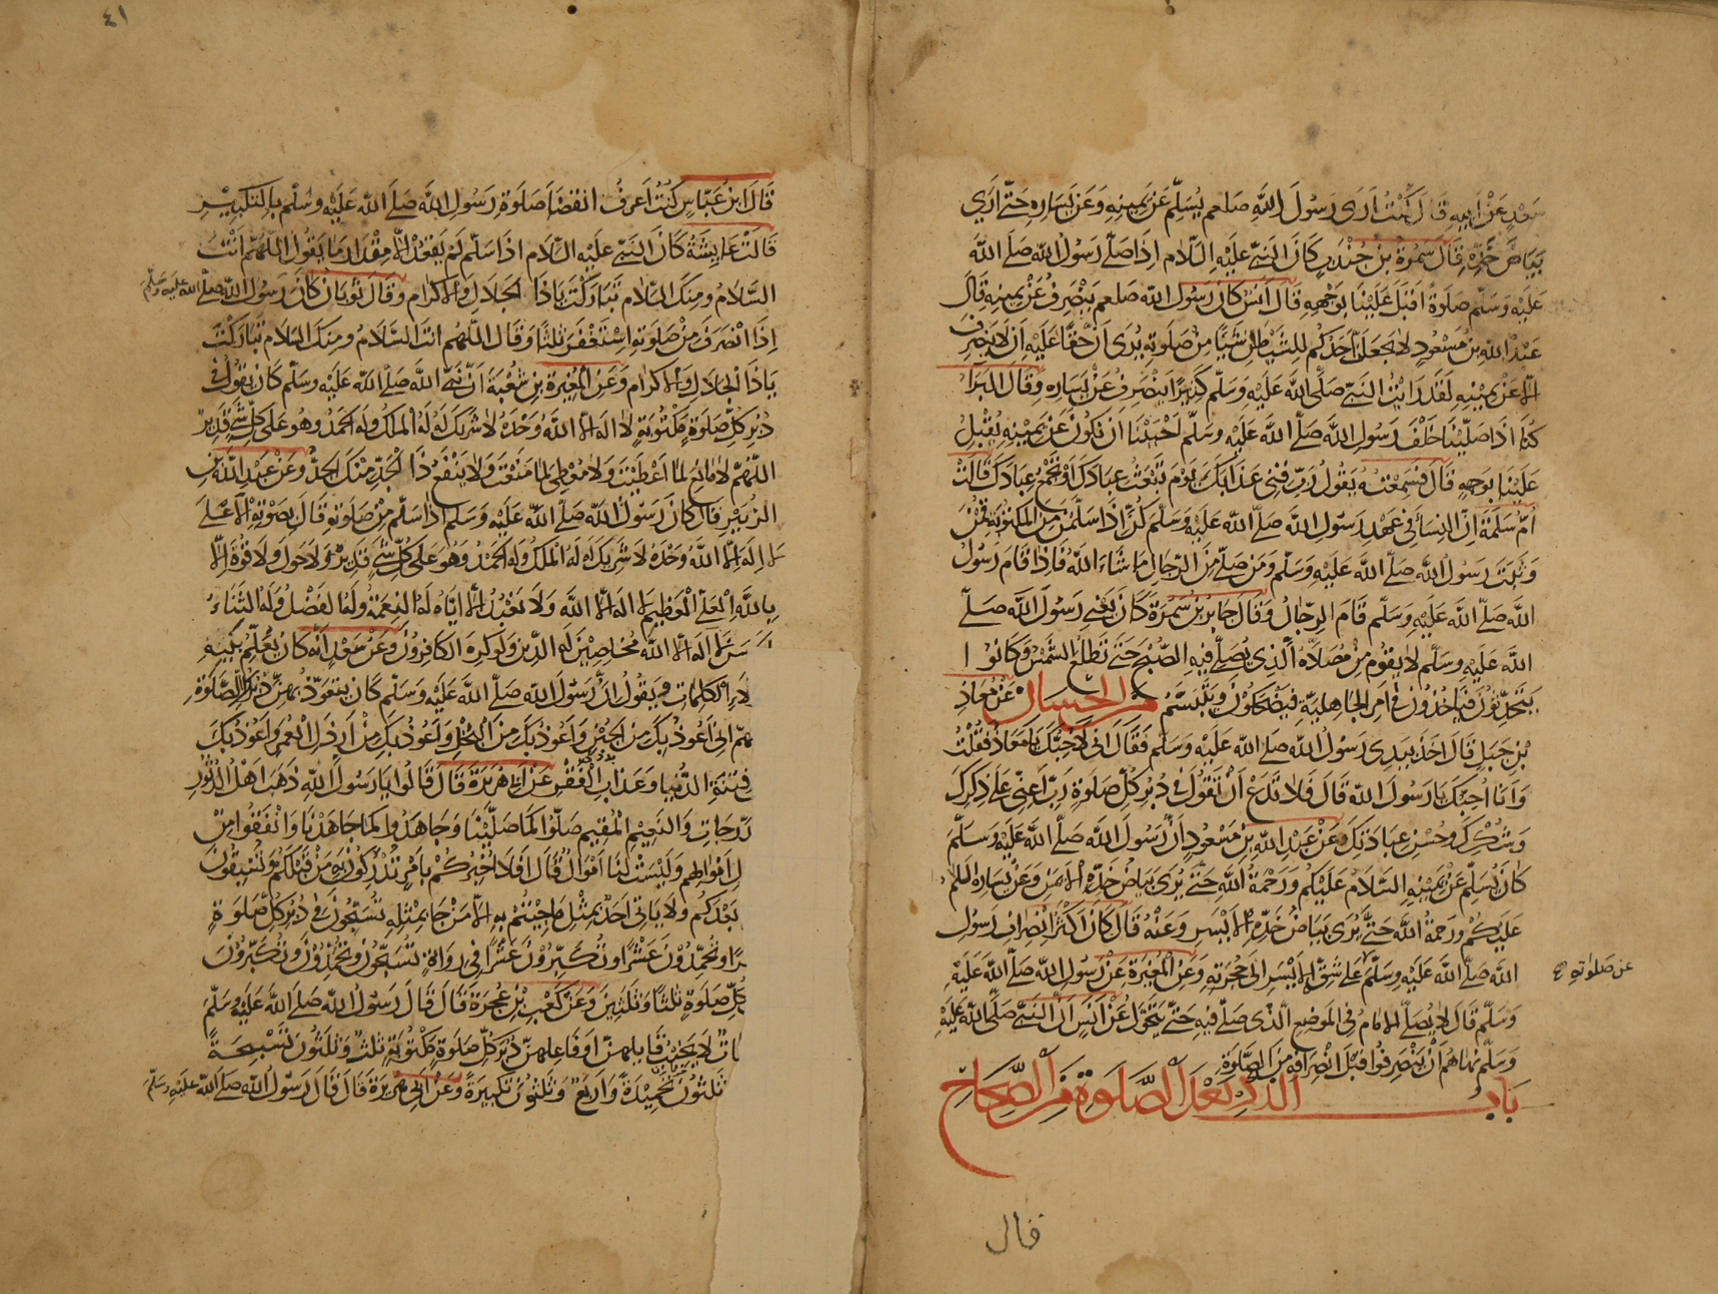 سعد عن ابيه قال كنت ارى رسول الله صلعم يسلم عن يمينه وعن يساره حتى ارى
بياض خده قال سمرة بن جندب كان النبي عليه السلام اذا صلى رسول الله صلى الله
عليه وسلم صلوة اقبل علينا بوجهه قال انس كان رسول الله صلعم ينصرف عن يمينه قال
عبد الله بن مسعود لا يجعلن احدكم للشيطان شيئا من صلوته يرى ان حقا عليه ان لا ينصرف
الا عن يمينه لقد رايت النبي صلى الله عليه وسلم كثيرا ينصرف عن يساره وقال البراء
كنا اذا صلينا خلف رسول الله صلى الله عليه وسلم احببنا ان نكون عن يمينه يقبل
علينا بوجهه قال فسمعته يقول رب قني عذابك يوم تبعث عبادك او تجمع عبادك قالت
ام سلمة ان النساء في عهد رسول الله صلى الله عليه وسلم كن اذا سلمن من المكتوبة قمن
وثبت رسول الله صلى الله عليه وسلم ومن صلى من الرجال ما شاء الله فاذا قام رسول
الله صلى الله عليه وسلم قام الرجال وقال جابر بن سمرة كان يعني رسول الله صلى
الله عليه وسلم لا يقوم من مصلاه الذي يصلي فيه الصبح حتى تطلع الشمس وكانوا
يتحدثون فياخذون في امر الجاهلية فيضحكون ويتبسم من الحسان عن معاذ
بن جبل قال اخذ بيدي رسول الله صلى الله عليه وسلم فقال اني لاحبك يا معاذ فقلت
وانا احبك يا رسول الله قال فلا تدع ان تقول في دبر كل صلوة رب اعني على ذكرك
وشكرك وحسن عبادتك عن عبد الله بن مسعود ان رسول الله صلى الله عليه وسلم
كان يسلم عن يمينه السلام عليكم ورحمة الله حتى يرى بياض خده الايمن وعن يساره السلام
عليكم ورحمة الله حتى يرى بياض خده الايسر وعنه قال كان اكثر انصراف رسول
الله صلى الله عليه وسلم على شقه الايسر الى حجرته وعن المغيرة عن رسول الله صلى الله عليه
عن صلوته
وسلم قال لا يصلي الامام في الموضع الذي صلى فيه حتى يتحول عن انس ان النبي صلى الله عليه
وسلم نهاهم ان ينصرفوا قبل انصرافه من الصلوة
باب الذكر بعد الصلوة من الصحاح
قال
٤١
قال ابن عباس كنت اعرف انقضاء صلوة رسول الله صلى الله عليه وسلم بالتكبير
قالت عايشة كان النبي عليه السلام اذا سلم لم يقعد الا مقدار ما يقول اللهم انت
السلام ومنك السلام تباركت يا ذا الجلال والاكرام وقال ثوبان كان رسول الله صلى الله عليه وسلم
اذا انصرف من صلوته استغفر ثلثا وقال اللهم انت السلام ومنك السلام تباركت
يا ذا الجلال والاكرام وعن المغيرة بن شعبة ان نبي الله صلى الله عليه وسلم كان يقول في
دبر كل صلوة مكتوبة لا اله الا الله وحده لا شريك له له الملك وله الحمد وهو على كل شيء قدير
اللهم لا مانع لما اعطيت ولا معطي لما منعت ولا ينفع ذا الجد منك الجد وعن عبد الله بن
الزبير قال كان رسول الله صلى الله عليه وسلم اذا سلم من صلوته قال بصوته الاعلى
لا اله الا الله وحده لا شريك له له الملك وله الحمد وهو على كل شيء قدير ولا حول ولا قوة الا
بالله العلي العظيم لا اله الا الله ولا نعبد الا اياه له النعمة وله الفضل وله الثناء
لا اله الا الله مخلصين له الدين ولو كره الكافرون وعن سعد انه كان يعلم بنيه
الكلمات ويقول ان رسول الله صلى الله عليه وسلم كان يتعوذ بهن دبر الصلوة
اني اعوذ بك من الجبن واعوذ بك من البخل واعوذ بك من ارذل العمر واعوذ بك
فتنة الدنيا وعذاب القبر عن ابي هريرة قال قالوا يا رسول الله ذهب اهل الدثور
درجات والنعيم المقيم صلوا كما صلينا وجاهدوا كما جاهدنا وانفقوا من
اموالهم وليست لنا اموال قال افلا اخبركم بامر تدركون به من قبلكم وتسبقون
بعدكم ولا ياتي احد بمثل ما جيتم به الا من جاء بمثله تسبحون في دبر كل صلوة
را وتحمدون عشرا وتكبرون عشرا في رواية تسبحون وتحمدون وتكبرون
كل صلوة ثلثا وثلثين وعن كعب بن عجرة قال قال رسول الله صلى الله عليه وسلم
ات لا يخيب قايلهن او فاعلهن دبر كل صلوة مكتوبة ثلث وثلثون تسبيحة
ثلثون تحميدة واربع وثلثون تكبيرة وعن ابي هريرة قال قال رسول الله صلى الله عليه وسلم